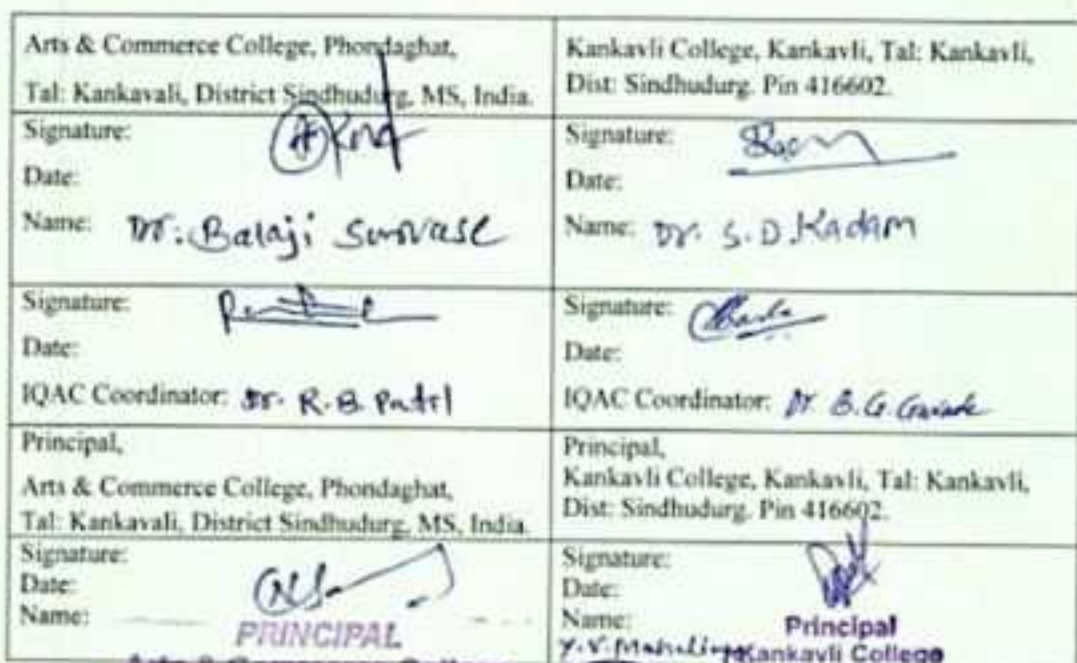 Arts & Commerce College, Phondaghat,
Tal: Kankavali, District Sindhudurg, MS, India.
Kankavli College, Kankavli, Tal: Kankavli,
Dist: Sindhudurg. Pin 416602.
Signature:
Date:
Name: Dr. Balaji Survase
Signature:
Date:
Name: Dr. S.D. Kadam
Signature:
Date:
IQAC Coordinator: Dr. R.B. Patil
Signature:
Date:
IQAC Coordinator: Dr. B.G.
Principal,
Arts & Commerce College, Phondaghat,
Tal: Kankavali, District Sindhudurg, MS, India.
Principal,
Kankavli College, Kankavli, Tal: Kankavli,
Dist: Sindhudurg. Pin 416602.
Signature:
Date:
Name:
PRINCIPAL
Arts & Commerce College
Signature:
Date:
Name:
Principal
Y.V.
Kankavli College